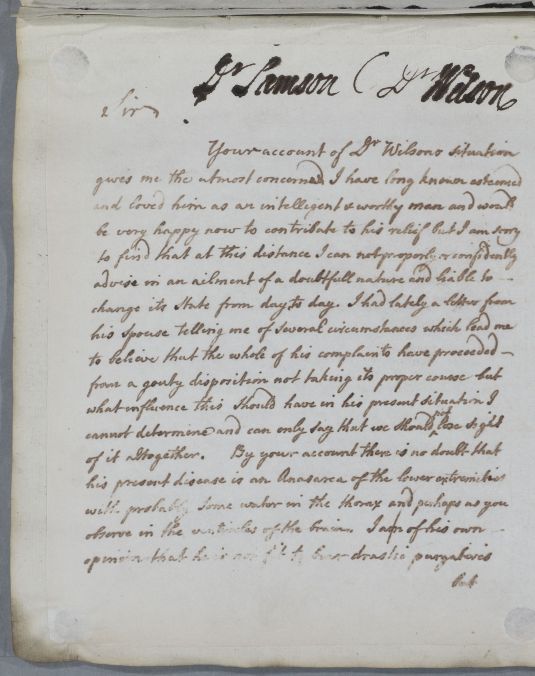 Dr Samson ( Dr Wilson
Sir
Your account of Dr Wilsons situation
gives me the utmost concern I have long known esteemed
and loved him as an intelligent & worthy man and would
be very happy now to contribute to his relief but I am sorry
to find that at this distance I can not properly or confidently
advise in an ailment of a doubtfull nature and liable to
change its state from day to day. I had lately a letter from
his Spouse telling me of several circumstances which lead me
to believe that the whole of his complaints have proceeded
from a gouty disposition not taking its proper course but
what influence this should have in his present situation I
cannot determine and can only say that we should not lose sight
of it altogether. By your account there is no doubt that
his present disease is an Anasarca of the lower extremities
with probably some water in the thorax and perhaps as you
observe in the ventricles of the brain. I am of his own
opinion that he is not fit to bear drastic purgatives
but